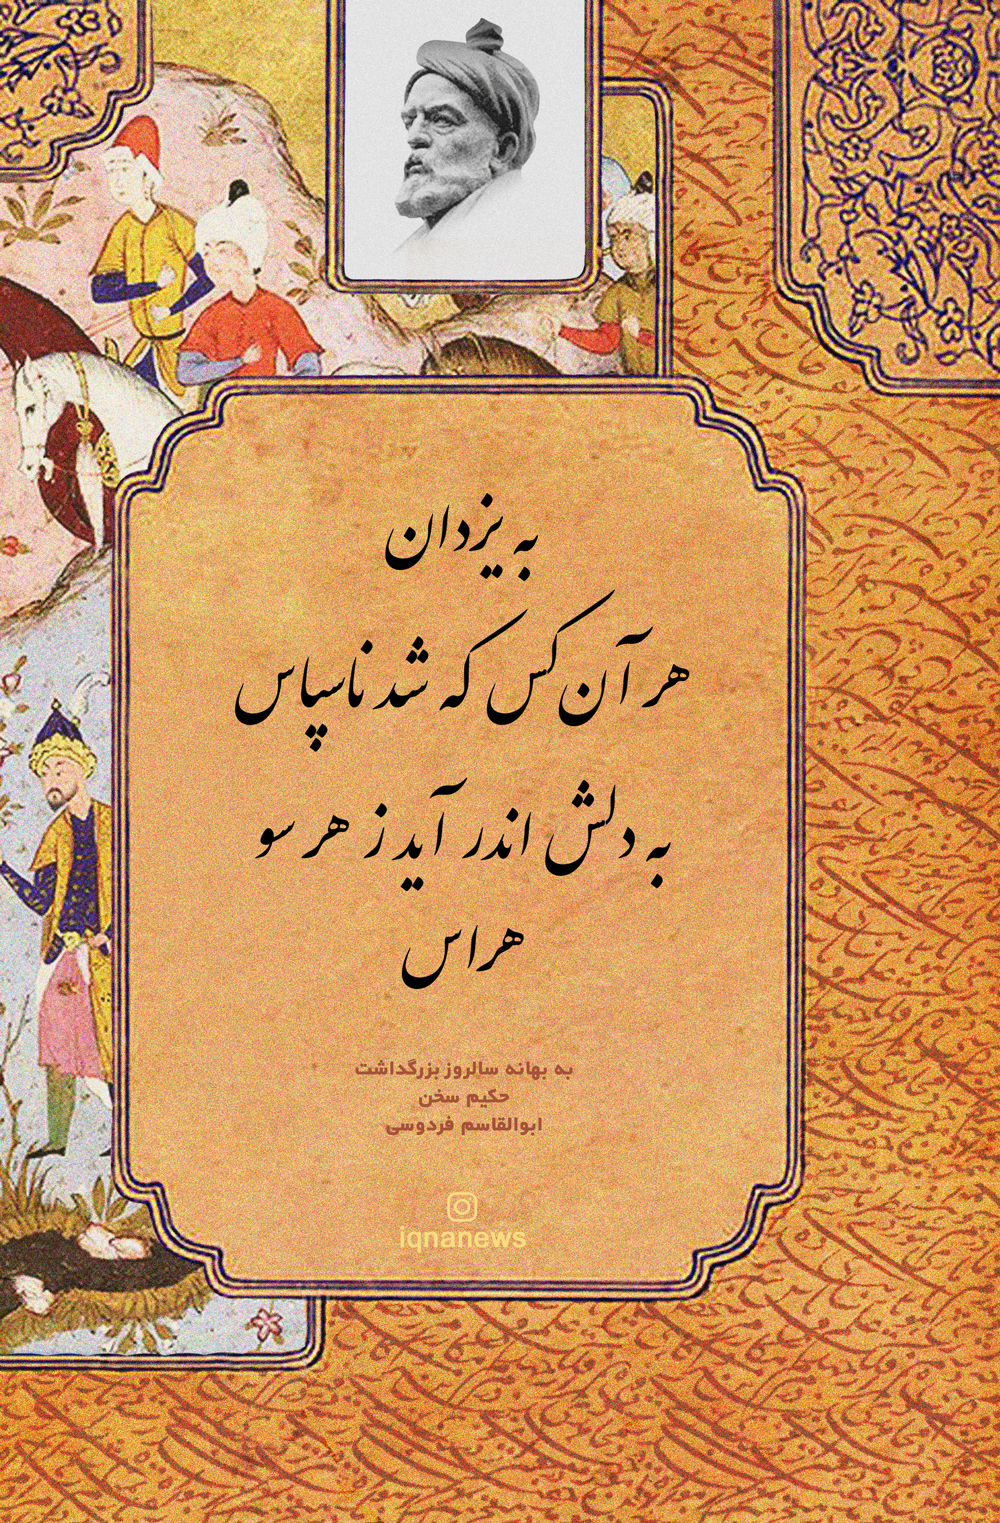 به یزدان
هر آن کس که شد ناسپاس
به دلش اندر آید ز هر سو
هراس
به بهانه سالروز بزرگداشت
حکیم سخن
ابوالقاسم فردوسی
iqnanews